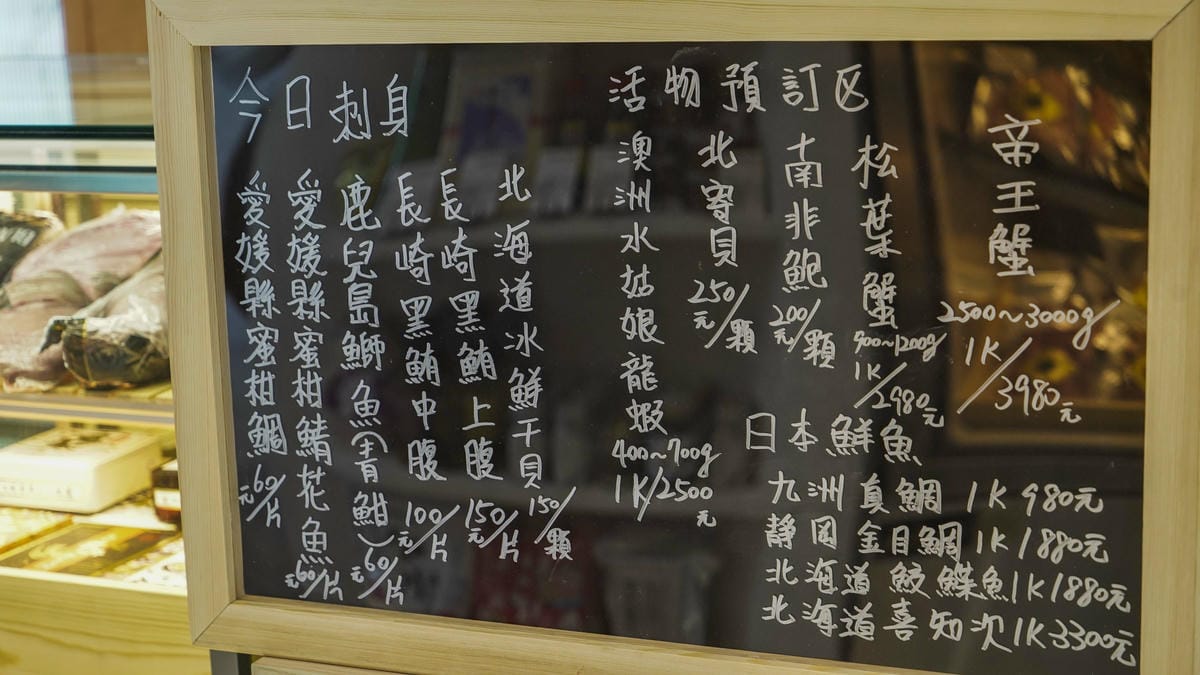 今日刺身
北海道冰鮮干貝 150/顆
長崎黑鮪上腹 150元/片
長崎黑鮪中腹 100元/片
鹿兒島鰤魚(青魽) 元60/片
愛媛縣蜜柑鯖花魚 元60/片
愛媛縣蜜柑鯛 元60/片
活物預訂区
帝王蟹 2500~3000g/ 1K/3980元
松葉蟹 900~1200g/ 1K/2980元
南非鮑 200元/顆
北寄貝 250元/顆
澳洲水姑娘龍蝦 400~700g 1K/2500元
日本鮮魚
九洲真鯛 1K 980元
靜岡金目鯛 1K 1880元
北海道鮫鰈魚 1K 1880元
北海道喜知次 1K 3300元